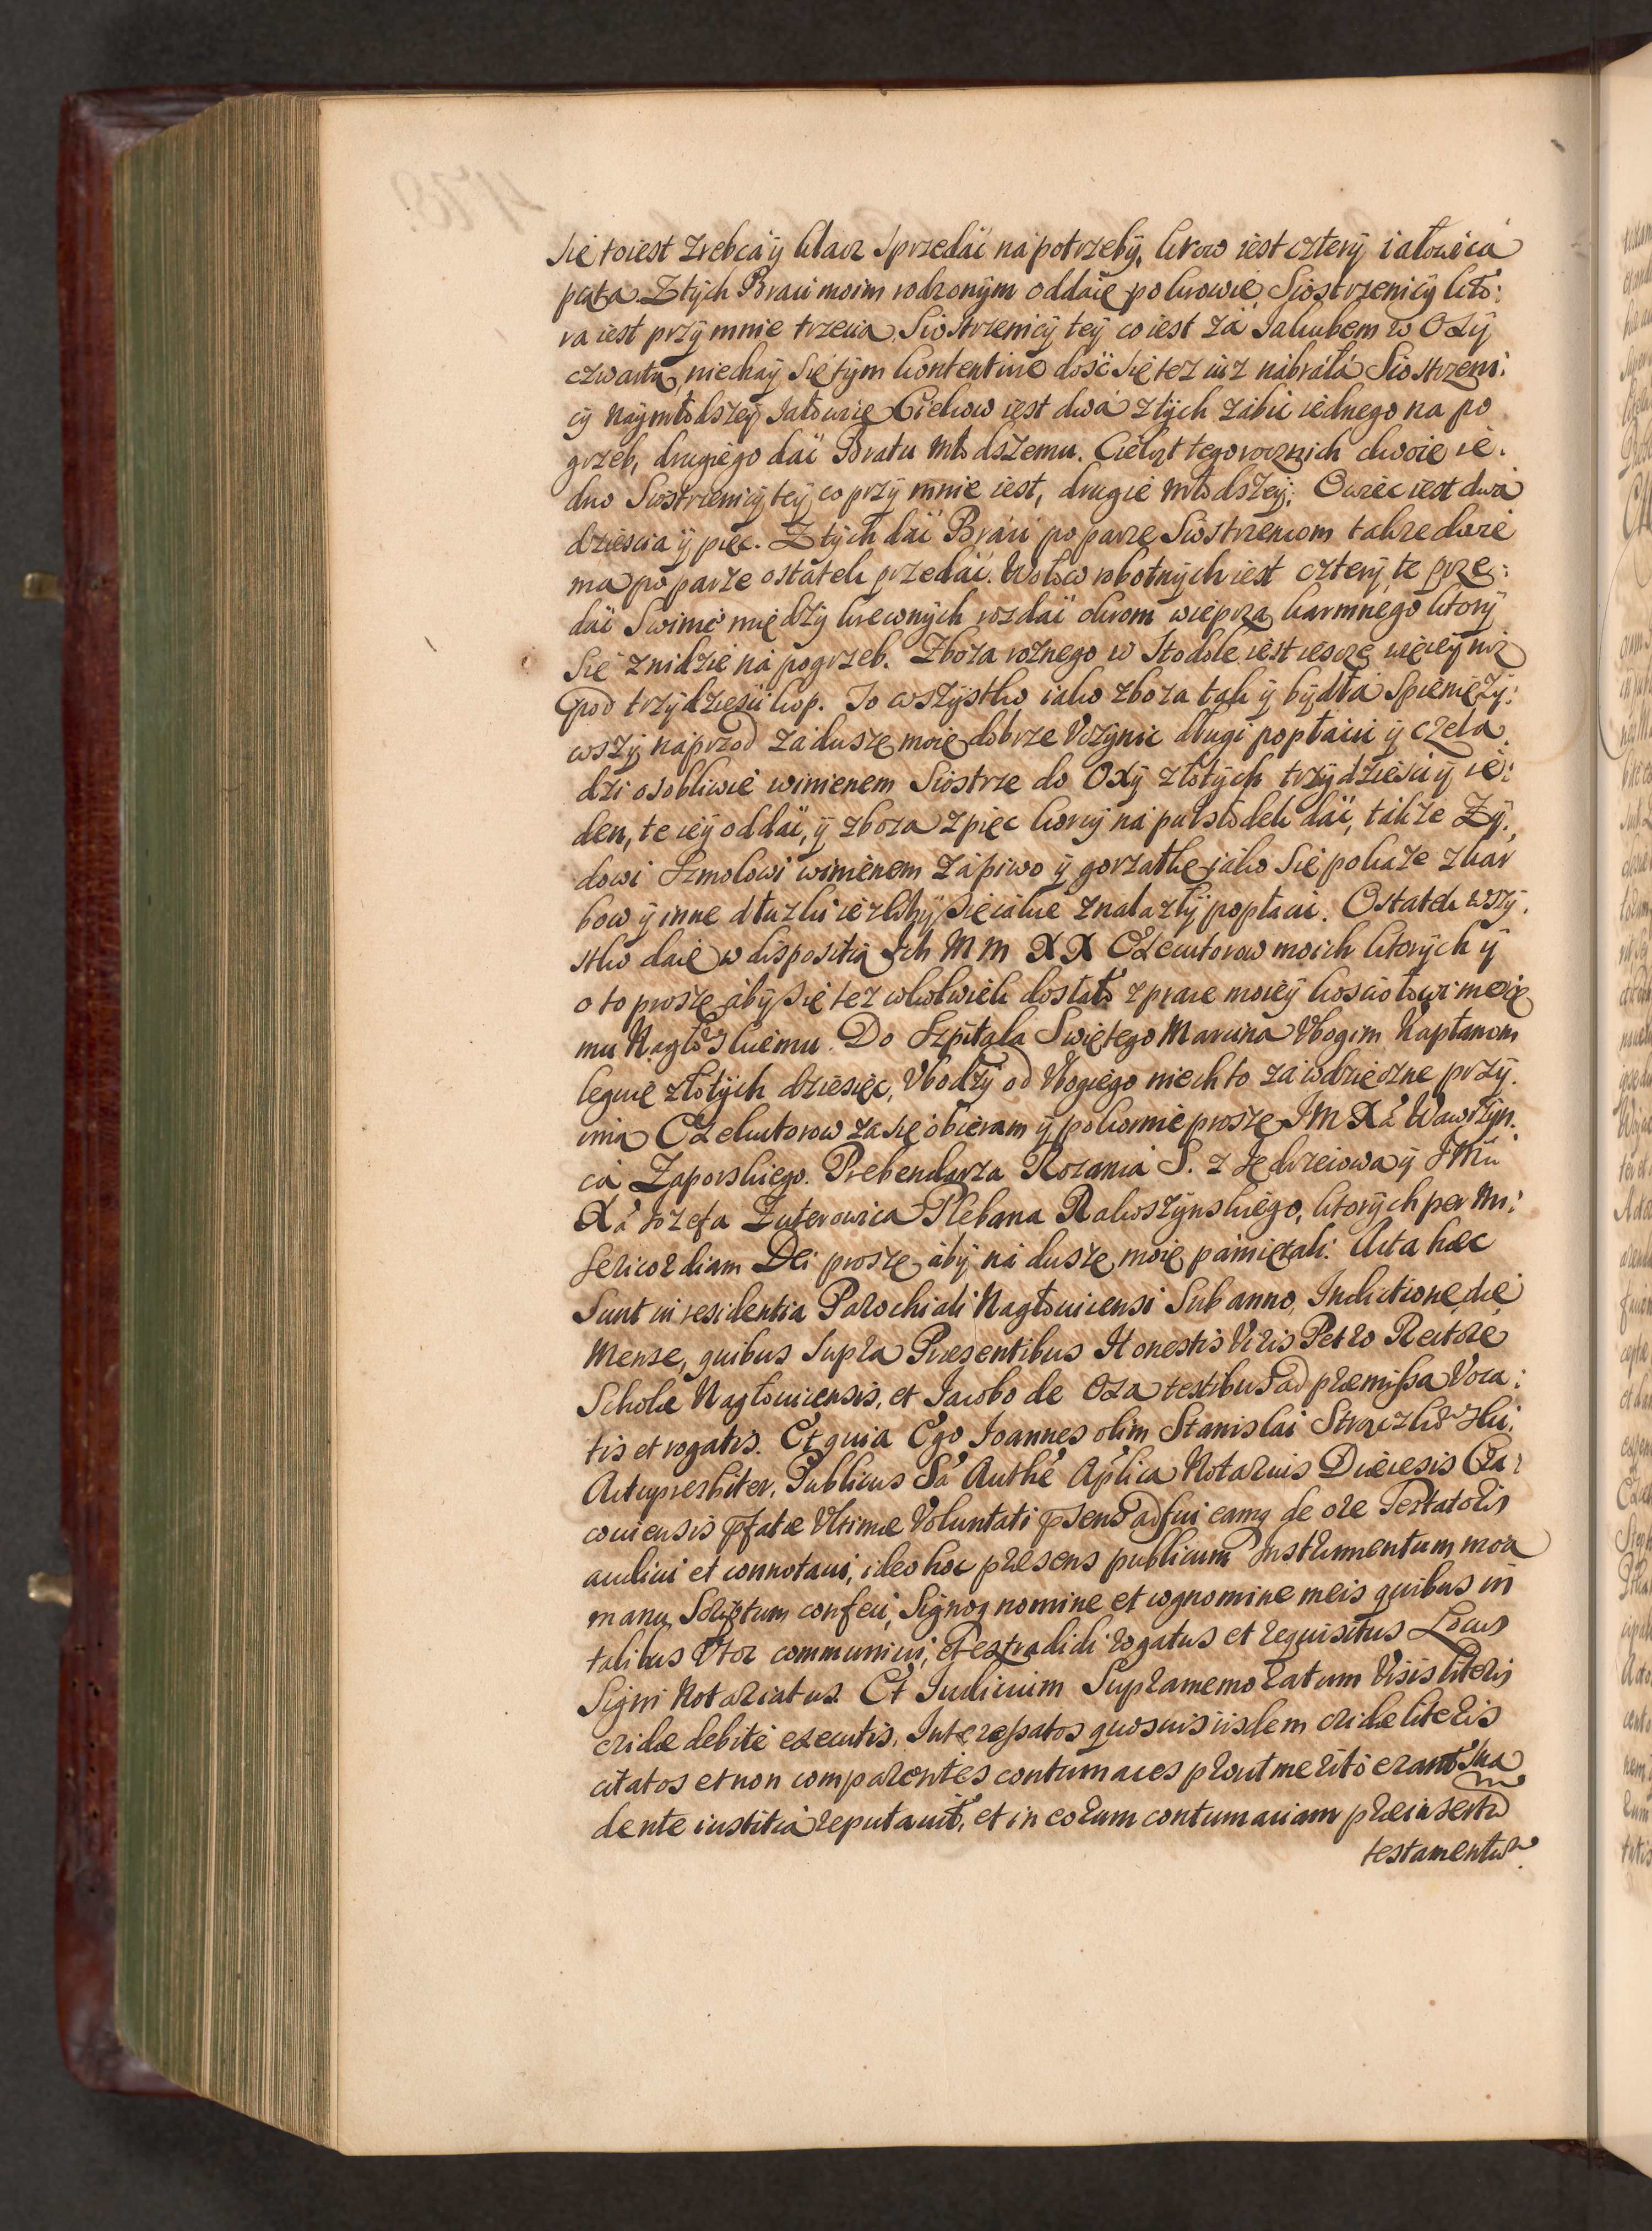 Się to iest zrebcá ÿ klacz Sprzedaić ná potrzebÿ, krow iest czterÿ iałowicá
piąta Z tÿch Braci moim rodzonÿm oddaię po krowie, Siostrzenicÿ kto:
ra iest przÿ mnie trzecia, Siostrzenicÿ teÿ co iest zá Jakubem w Oxÿ
czwarta, niechaÿ Się tÿm kontentuie dość Się też iuż nábráłá Siostrzeni:
cÿ Naÿmłodszeÿ Jałowicę Ciełcow iest dwá z tÿch zábić iednego na po
grzeb, drugiego dáć Bratu Młodszemu. Cieląt tegorocznich dwoie ie:
dno Siostrzenicÿ teÿ co przÿ mnie iest, drugie Młodszeÿ. Owiec iest dwá
dzieścia ÿ pięc. Z tÿch dáć Bráci po parze Siostrzenicom także dwie
ma po parze ostatek przedáć. Wołow robotnÿch iest czterÿ, te prze:
dáć Swinie międzÿ krewnÿch rozdáć okrom wieprza karmnego ktorÿ
Się znidzie ná pogrzeb. Zboża rożnego w Stodole iest iescze więceÿ niż
pod trzÿdzieści kop. To wszÿstko iako zboża tak ÿ bÿdłá Spieniężÿ:
wszÿ náprzod zá duszę moię dobrze Vczÿnic długi popłacić ÿ czela
dzi osobliwie winienem Siostrze do Oxÿ złotÿch trzÿdzieści ÿ ie:
den, te ieÿ oddáć, ÿ zboża z pięc korcÿ ná pułsłodek dáć, także Zÿ:
dowi Szmolowi winienem zá piwo ÿ gorzałkę iáko Się pokaże z kar
bow ÿ inne dłużki ieżlibÿ Się iákie znalazłÿ popłacić. Ostatek wszÿ.
stko daię w disposicią Ich M M X X Exekutorow moich ktorÿch ÿ
o to proszę ábÿ Się też cokolwiek dostáło z prace moieÿ kosciołowi moie
mu Nagłowskiemu. Do Szpitala Swiętego Marcina Vbogim Kapłanom
leguię złotÿch dziesięc, Vbodzÿ od Vbogiego niech to za wdzięczne przÿ.
imą Exekutorow za Się obieram ÿ pokornie proszę JM Xá Wawrzÿn.
cá Zaporskiego. Prebendarza Rożania S. z Jędrzeiowa ÿ JMci
Xá Jozefa Zuterowica Plebana Rakoszÿnskiego, ktorÿch per Mi:
sericordiam Dei proszę, ábÿ ná duszę moię pámiętali. Acta hæc
Sunt in residentia Parochiali Nagłoviciensi Sub anno, Indictione, die,
Mense, quibus Supra Præsentibus Honestis Viris Petro Rectore
Scholæ Nagłoviciensis, et Jacobo de Oxa testibus ad præmissa Voca:
tis et rogatis. Et quia Ego Joannes olim Stanislai
Archipresbiter, Publicus Sá Authē Aplica Notarius Diæcesis Cra:
coviensis pfatæ Vltimæ Voluntati psens adfui eamq de ore Testatoris
audivi et connotavi, ideo hoc præsens publicum Instrumentum mea
manu Scriptum confeci, Signoq nomine et cognomine meis quibus in
talibus Vtor communivi, et extradidi rogatus et requisitus Locus
Signi Notariatus. Et Iudicium Supramemoratum Visis literis
cridæ debite executis. Interessatos quosvis iisdem cridæ literis
citatos et non comparentes contumaces prout merito erant sua
dente iustitia reputavit, et in eorum contumaciam præinsertum
testamentum